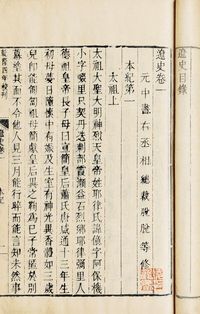 遼史目錄
遼史卷一
元中書右丞相總裁脫脫等修
本紀第一
太祖上
太祖大聖大明神烈天皇帝姓耶律氏諱億字阿保機
小字啜里只契丹迭剌部霞瀨益石烈鄉耶律彌里人
德祖皇帝長子母曰宣簡皇后蕭氏唐咸通十三年生
初母夢日墮懷中有娠及生室有神光異香體如三歲
兒即能匍匐祖母簡獻皇后異之鞠為己子常匿於別
幕塗其面不令他人見三月能行晬而能言知未然事
乾隆四年校刊
遼史卷一